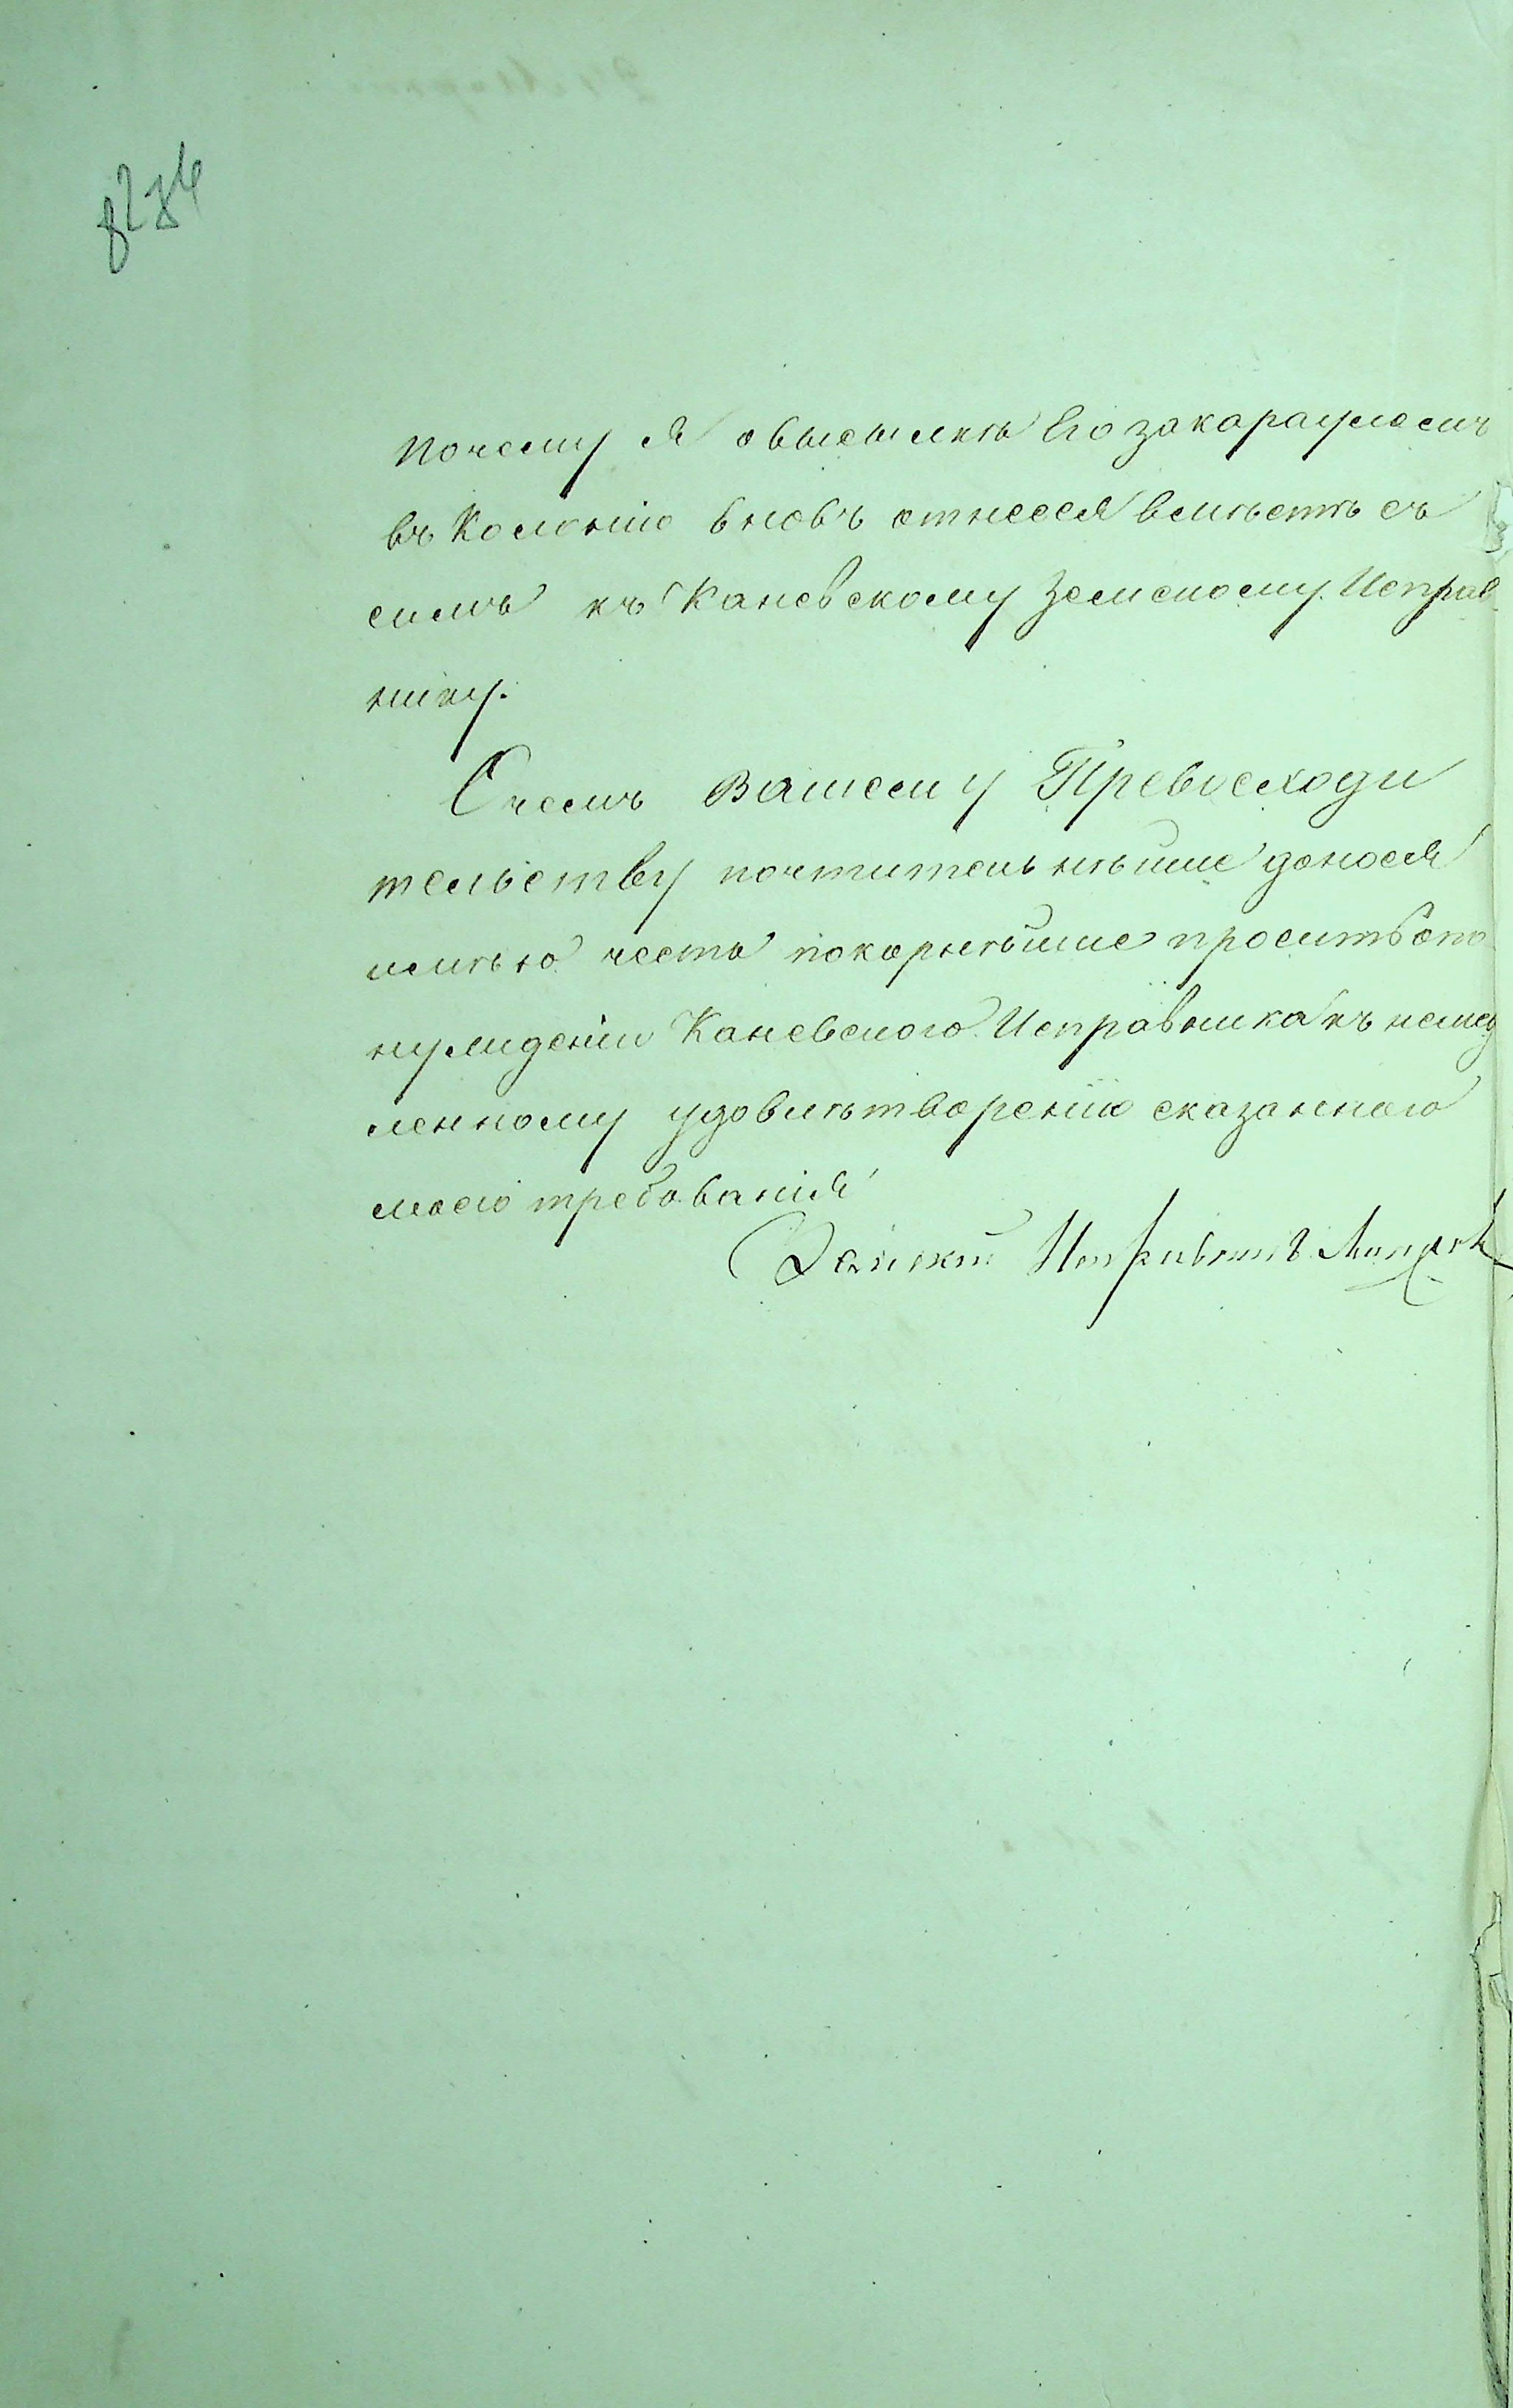 почему я овысылкѣ Его закарауломъ
въ Колонію вновь отнесся вмѣстѣ съ
симъ къ Каневскому Земскому Исправ
нику.
Очемъ Вашему Превосходи
тельству почтительнѣйше донося
имѣю честь покорнѣйше просить опо
нужденіи Каневского Исправника къ немед
ленному удовлѣтворенію сказанного
моего требованія
Исправникъ